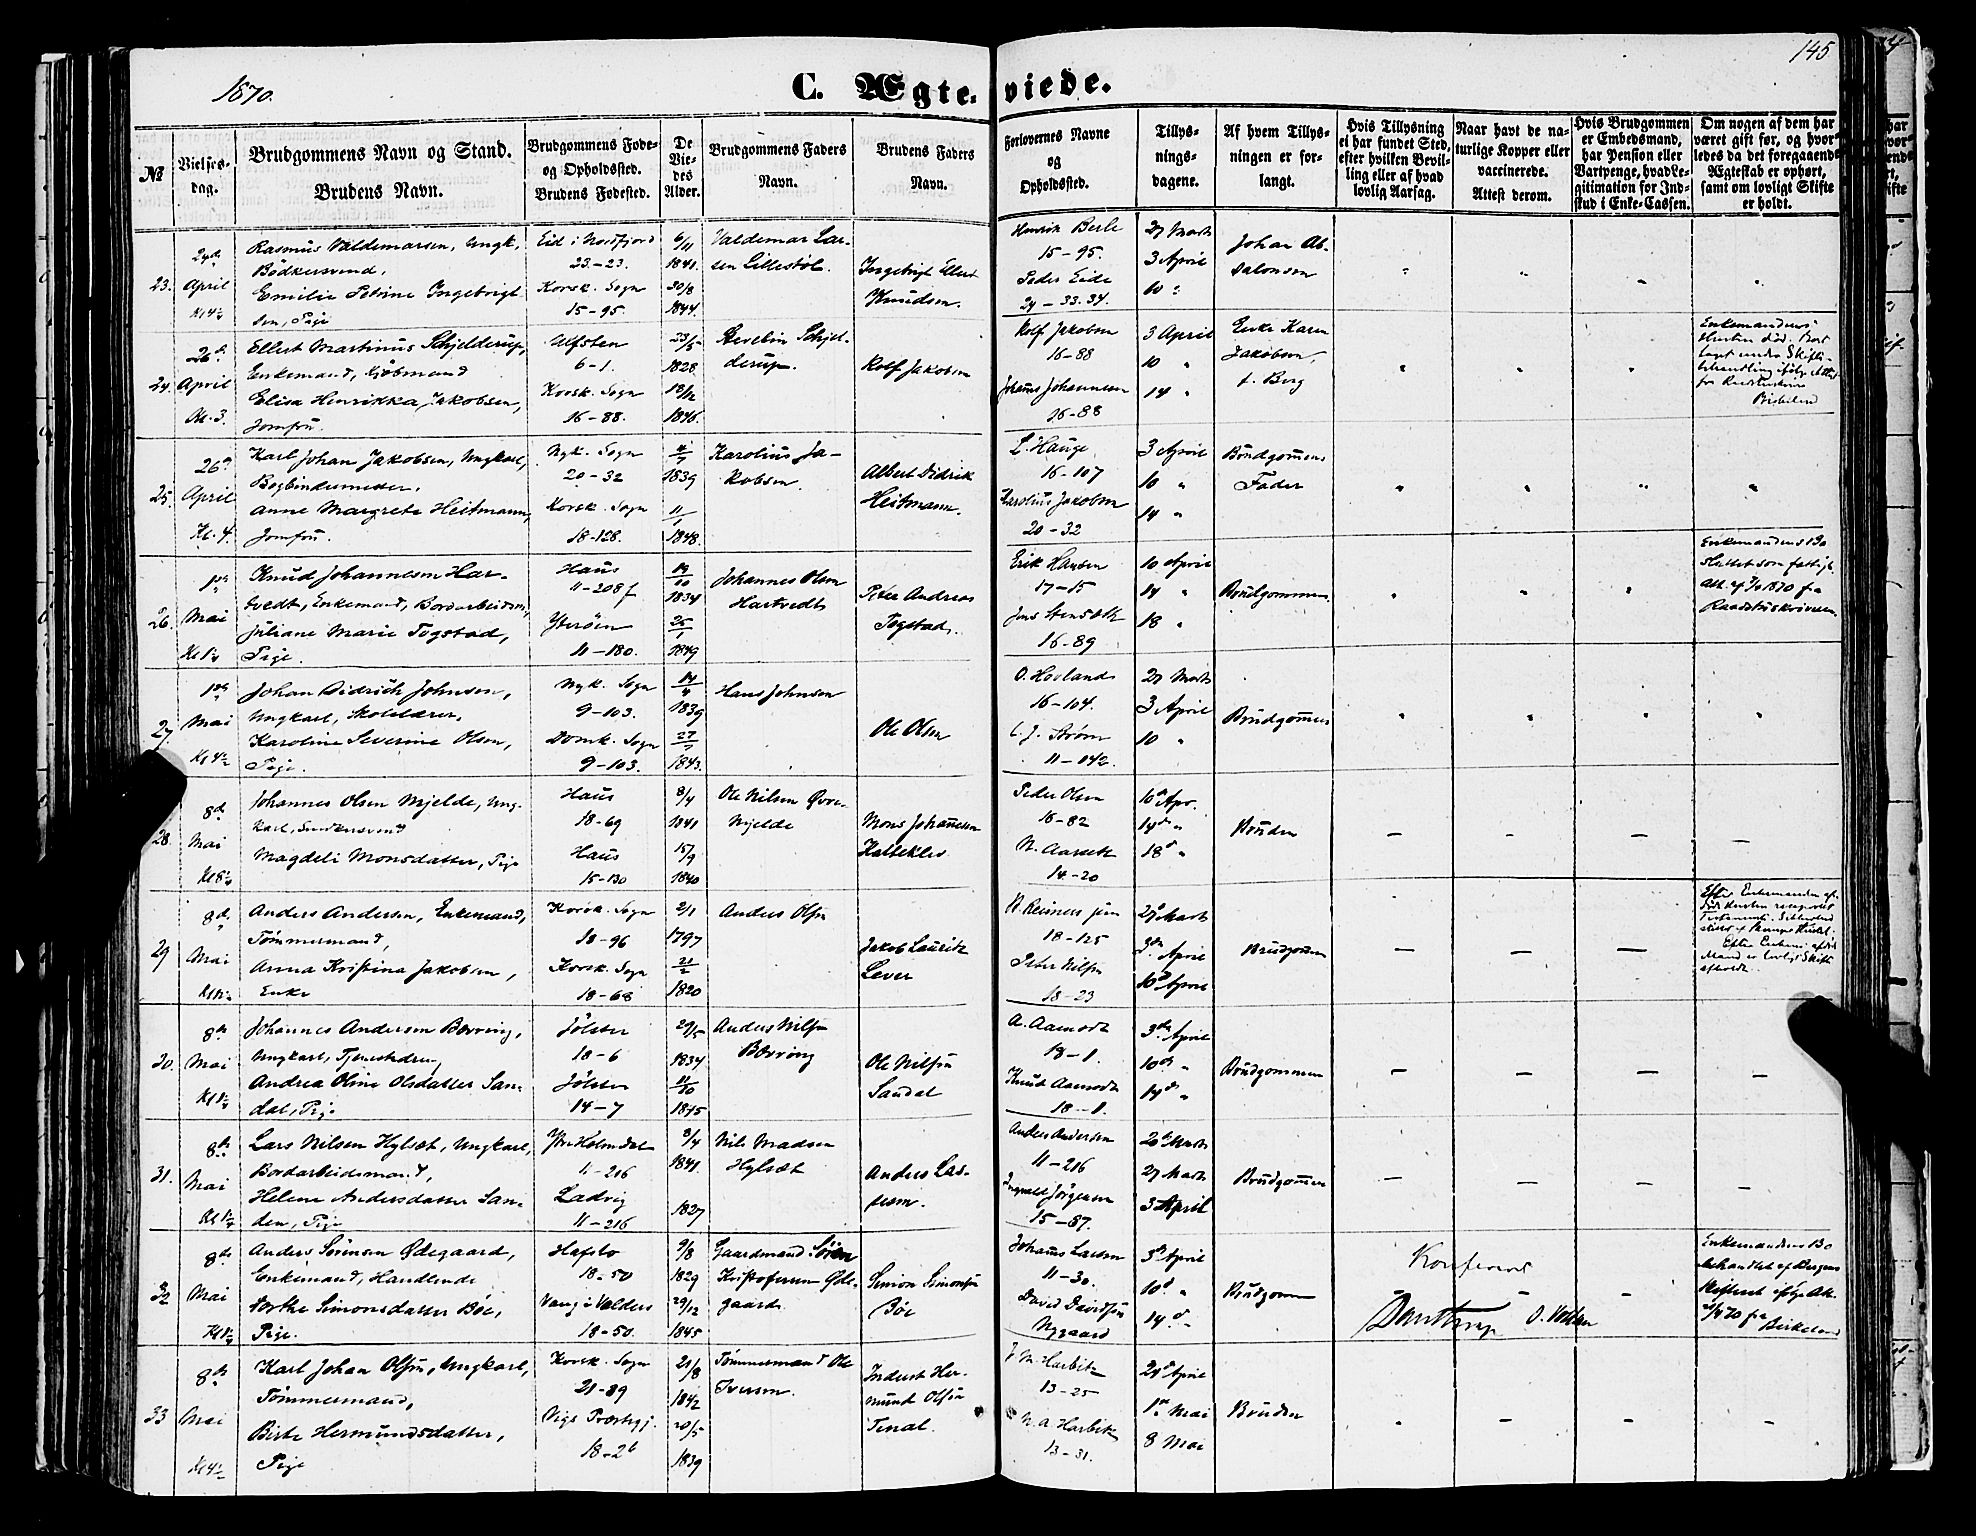 1870.
C. Ægteviede.
145
№
Vielses-
dag.
Brudgommens Navn og Stand.
Brudens Navn.
Brudgommens Føde-
og Opholdssted.
Brudens Fødested.
De
Vie-
des
Alder.
Brudgommens Faders
Navn.
Brudens Faders
Navn.
Forlovernes Navne
og
Opholdssted.
Tillys-
nings-
dagene.
Af hvem Tillys-
ningen er for-
langt.
Hvis Tillysning
ei har fundet Sted,
efter hvilken Bevil-
ling eller af hvad
lovlig Aarsag.
Naar havt de na-
turlige Kopper eller
vaccinerede.
Attest derom.
Hvis Brudgommen
er Embedsmand,
har Pension eller
Vartpenge, hvad Le-
gitimation for Ind-
skud i Enke-Cassen.
Om nogen af dem har
været gift før, og hvor-
ledes da det foregaaende
Ægteskab er ophørt,
samt om lovligt Skifte
er holdt.
23.
24de
April
Kl 4½
Rasmus Valdemarsen, Ungk.,
Bödkersvend,
Emilie Petrine Ingebrigt-
sen, Pige
Eid i Nordfjord
23.-23.
Korsk. Sogn
15-95.
6/11
1841.
30/8
1844.
Valdemar Lar-
sen Lillestöl.
Ingebrigt Ellert
Knudsen.
Henrik Berle
15-95.
Peder Eide
24-33.34.
27 Marts
3 April
10 "
Johan Ab-
salonsen
24.
26de
April
Kl. 3.
Ellert Martinus Schjelderup,
Enkemand, Kjöbmand
Elisa Henrikka Jakobsen,
Jomfru.
Alfsten
6-1.
Korsk. Sogn
16-88.
23/5
1828
18/12
1846.
Schjel-
derup.
Rolf Jakobsen
Rolf Jakobsen
16-88
Johans Johannesen
16-88
3 April
10 "
14 "
Enke Karen
Jakobsen,
f. Berg
Enkemandens
Hustru död. Boet
taget under Skifte-
behandling ifölge Attest
fra
25.
26de
April
Kl. 4.
Karl Johan Jakobsen, Ungkarl,
Bogbindermester.
Anne Margrete Heitmann,
Jomfru.
Nyk. Sogn
20-32
Korsk. Sogn
18-128.
1839
11/1
1848.
Karolius Ja-
kobsen.
Albert Didrik
Heitmann.
L. Hauge
16-107
Karolius Jakobsen
20-32
3 April
10 "
14 "
Brudgommens
Fader
26.
1ste
Mai
Knud Johannesen Har-
tvedt, Enkemand, Bordarbeidsm.,
Juliane Marie Togstad,
Pige.
Haus
11-208 f
Ytteröen
11-180.
19/10
1834
25/1
1849
Johannes Olsen
Hartvedt
Peter Andreas
Togstad.
Erik Hansen
17-15
Jens
16-89
10 April
14 "
18 "
Brudgommen.
Enkemandens Bo
sluttet som fattigt
Att. af 1870 fra
Raadstueskriveren.
27.
1ste
Mai
Kl 4½
Johan Didrich Johnsen,
Ungkarl, Skolelærer,
Karoline Severine Olsen,
Pige.
Nyk. Sogn
9-103.
Domk. Sogn
9-103.
14/4
1839
27/7
1843.
Hans Johnsen
Ole Olsen
O. Hovland
16-104.
C. J. Ström
11-142.
27 Marts
3 April
10 "
Brudgommen
28.
8de
Mai
Johannes Olsen Mjelde, Ung-
karl,
Magdeli Monsdatter, Pige
Haus
18-69
Haus
15-130
8/4
1841
15/9
1840
Ole Nilsen Övre-
Mjelde
Mons Johannesen
Kalseklev
Peder Olsen
18-82
N. Aarseth
14-20
10de Apr.
14de "
18d "
Bruden
29
8de
Mai
Anders Andersen, Enkemand,
Tømmermand,
Anna Kristina Jakobsen,
Enke
Korsk. Sogn
18-96
Korsk. Sogn
18-68
2/1
1797
21/2
1820
Anders Olsen
Jakob Lauritz
Lever
H Reimers jun
18-125
Peter Nilsen
18-23
27de Marts
3de April
10de April
Brudgommen
30.
8de
Mai
Johannes Andersen Bövring,
Ungkarl, Tjenestedreng
Andrea Oline Olsdatter San-
dal, Pige
Jölster
18-6
Jölster
14-7
29/5
1834
11/10
1845
Anders Nilsen
Bövring
Ole Nilsen
Sandal
A. Aamodt
18-1.
Knud Aamodt
18-1.
3de April
10de "
14de "
Brudgommen
31.
8de
Mai
Lars Nilsen Hylsæt, Ungkarl,
Bordarbeidsmand,
Helene Andersdatter San-
den, Pige
Ytre Holmedal
11-216
Ladvig
11-216
8/4
1841.
1827
Nils Madsen
Hylsæt
Anders Las-
sesen.
Anders Andersen
11-216
Ingvald Jörgensen
15-87.
20de Marts
27 Marts
3 April
Brudgommen
32
8de
Mai
Anders Sörensen Ödegaard,
Enkemand, Handlende
Simonsdatter Böe,
Pige.
Hafslo
18-50
Vang i Valders
18-50.
9/8
1829
29/12
1845
Gaardmand Sören
Kristofersen Öde-
gaard
Simon Simonsen
Böe
Johans Larsen
11-30.
David Davidsen
Nygaard
3de April
10d "
14d "
Brudgommen
Konfereret
Enkemandens Bo
behandlet af Bergens
Skifteret ifölge Att.
fra
Birkeland
33
8de
Mai
Kl 4½
Karl Johan Olsen, Ungkarl,
Tömmermand,
Birte Hermundsdatter,
Pige
Korsk. Sogn
21-89
Vigs Præstegj.
18-26
21/8
1842
20/5
1839
Tömmermand Ole
Iversen.
Inderst Her-
mund Olsen
J. M. Harbitz
13-25
N. A. Harbitz
13-31.
24de April
1ste Mai
8 Mai
Bruden